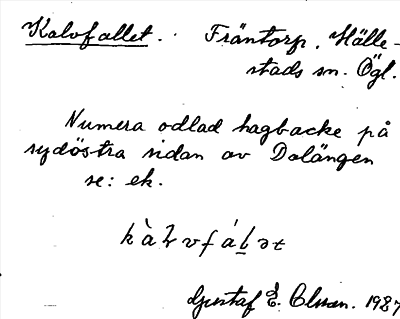 Kalvfallet. Fräntorp. Hälle-
stads sn. Ögl.
Numera odlad hagbacke på
sydöstra sidan av Dalängen
se: ek.
Gustaf E. Olsson. 1927